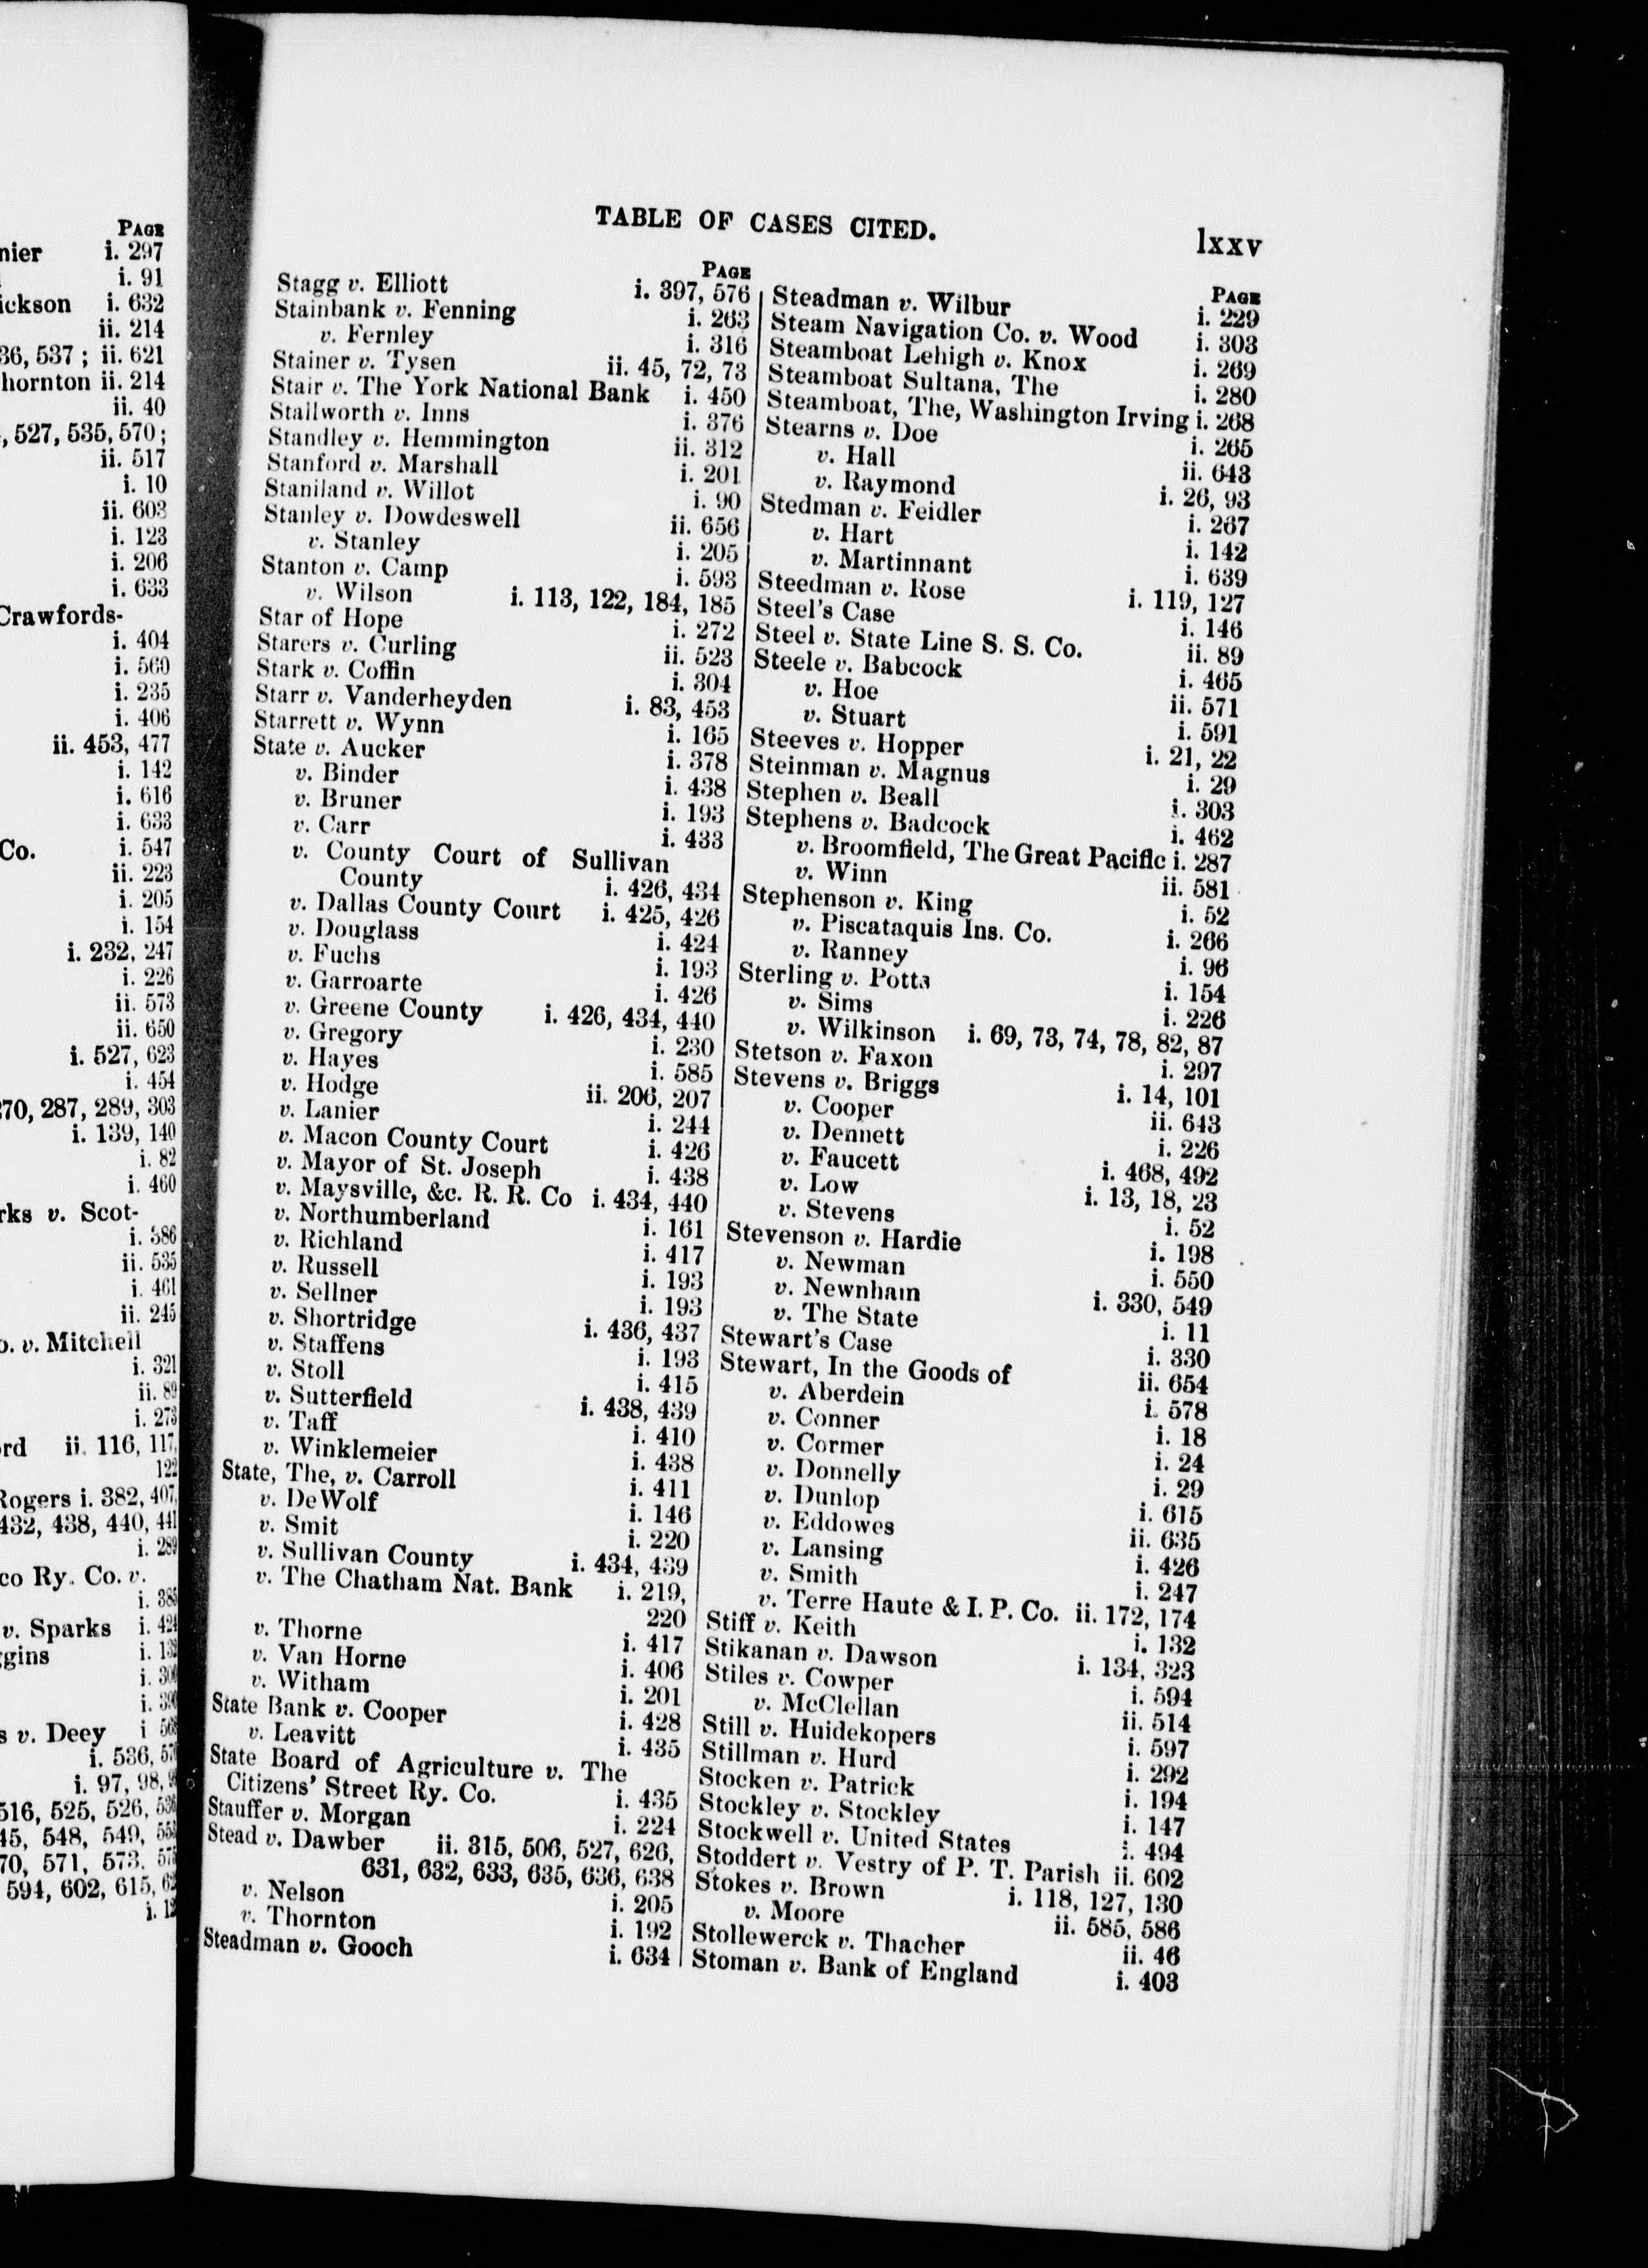 PAGE
nier i. 297
i. 91
ickson i. 632
ii. 214
36, 537 ; ii. 621
hornton ii. 214
ii. 40
, 527, 535, 570 ;
ii. 517
i. 10
ii. 603
i. 123
i. 206
i. 633
Crawfords-
i. 404
i. 560
i. 235
i. 406
ii. 453, 477
i. 142
i. 616
i. 633
Co. i. 547
ii. 223
i. 205
i. 154
i. 232, 247
i. 226
ii. 573
ii. 650
i. 527, 623
i. 454
70, 287, 289, 303
i. 139, 140
i. 82
i. 460
rks v. Scot-
i. 386
ii. 535
i. 461
ii. 245
o. v. Mitchell
i. 321
ii. 89
i. 273
rd ii. 116, 117,
122
Rogers i. 382, 407,
432, 438, 440, 441
i. 289
co Ry. Co. v.
i. 385
v. Sparks i. 424
gins i.
i.
i.
s v. Deey i
i. 536,
i. 97, 98,
516, 525, 526,
45, 548, 549,
70, 571, 573.
594, 602, 615,
i.
TABLE OF CASES CITED. lxxv
PAGE
Stagg v. Elliott i. 397, 576
Stainbank v. Fenning i. 263
v. Fernley i. 316
Stainer v. Tysen ii. 45, 72, 73
Stair v. The York National Bank i. 450
Stallworth v. Inns i. 376
Standley v. Hemmington ii. 312
Stanford v. Marshall i. 201
Staniland v. Willot i. 90
Stanley v. Dowdeswell ii. 656
v. Stanley i. 205
Stanton v. Camp i. 593
v. Wilson i. 113, 122, 184, 185
Star of Hope i. 272
Starers v. Curling ii. 523
Stark v. Coffin i. 304
Starr v. Vanderheyden i. 83, 453
Starrett v. Wynn i. 165
State v. Aucker i. 378
v. Binder i. 438
v. Bruner i. 193
v. Carr i. 433
v. County Court of Sullivan
County i. 426, 434
v. Dallas County Court i. 425, 426
v. Douglass i. 424
v. Fuchs i. 193
v. Garroarte i. 426
v. Greene County i. 426, 434, 440
v. Gregory i. 230
v. Hayes i. 585
v. Hodge ii. 206, 207
v. Lanier i. 244
v. Macon County Court i. 426
v. Mayor of St. Joseph i. 438
v. Maysville, &c. R. R. Co i. 434, 440
v. Northumberland i. 161
v. Richland i. 417
v. Russell i. 193
v. Sellner i. 193
v. Shortridge i. 436, 437
v. Staffens i. 193
v. Stoll i. 415
v. Sutterfield i. 438, 439
v. Taff i. 410
v. Winklemeier i. 438
State, The, v. Carroll i. 411
v. DeWolf i. 146
v. Smit i. 220
v. Sullivan County i. 434, 439
v. The Chatham Nat. Bank i. 219,
220
v. Thorne i. 417
v. Van Horne i. 406
v. Witham i. 201
State Bank v. Cooper i. 428
v. Leavitt i. 435
State Board of Agriculture v. The
Citizens' Street Ry. Co. i. 435
Stauffer v. Morgan i. 224
Stead v. Dawber ii. 315, 506, 527, 626,
631, 632, 633, 635, 636, 638
v. Nelson i. 205
v. Thornton i. 192
Steadman v. Gooch i. 634
PAGE
Steadman v. Wilbur i. 229
Steam Navigation Co. v. Wood i. 303
Steamboat Lehigh v. Knox i. 269
Steamboat Sultana, The i. 280
Steamboat, The, Washington Irving i. 268
Stearns v. Doe i. 265
v. Hall ii. 643
v. Raymond i. 26, 93
Stedman v. Feidler i. 267
v. Hart i. 142
v. Martinnant i. 639
Steedman v. Rose i. 119, 127
Steel's Case i. 146
Steel v. State Line S. S. Co. ii. 89
Steele v. Babcock i. 465
v. Hoe ii. 571
v. Stuart i. 591
Steeves v. Hopper i. 21, 22
Steinman v. Magnus i. 29
Stephen v. Beall i. 303
Stephens v. Badcock i. 462
v. Broomfield, The Great Pacific i. 287
v. Winn ii. 581
Stephenson v. King i. 52
v. Piscataquis Ins. Co. i. 266
v. Ranney i. 96
Sterling v. Potts i. 154
v. Sims i. 226
v. Wilkinson i. 69, 73, 74, 78, 82, 87
Stetson v. Faxon i. 297
Stevens v. Briggs i. 14, 101
v. Cooper ii. 643
v. Dennett i. 226
v. Faucett i. 468, 492
v. Low i. 13, 18, 23
v. Stevens i. 52
Stevenson v. Hardie i. 198
v. Newman i. 550
v. Newnham i. 330, 549
v. The State i. 11
Stewart's Case i. 330
Stewart, In the Goods of ii. 654
v. Aberdein i. 578
v. Conner i. 18
v. Cormer i. 24
v. Donnelly i. 29
v. Dunlop i. 615
v. Eddowes ii. 635
v. Lansing i. 426
v. Smith i. 247
v. Terre Haute & I. P. Co. ii. 172, 174
Stiff v. Keith i. 132
Stikanan v. Dawson i. 134, 323
Stiles v. Cowper i. 594
v. McClellan ii. 514
Still v. Huidekopers i. 597
Stillman v. Hurd i. 292
Stocken v. Patrick i. 194
Stockley v. Stockley i. 147
Stockwell v. United States i. 494
Stoddert v. Vestry of P. T. Parish ii. 602
Stokes v. Brown i. 118, 127, 130
v. Moore ii. 585, 586
Stollewerck v. Thacher ii. 46
Stoman v. Bank of England i. 403